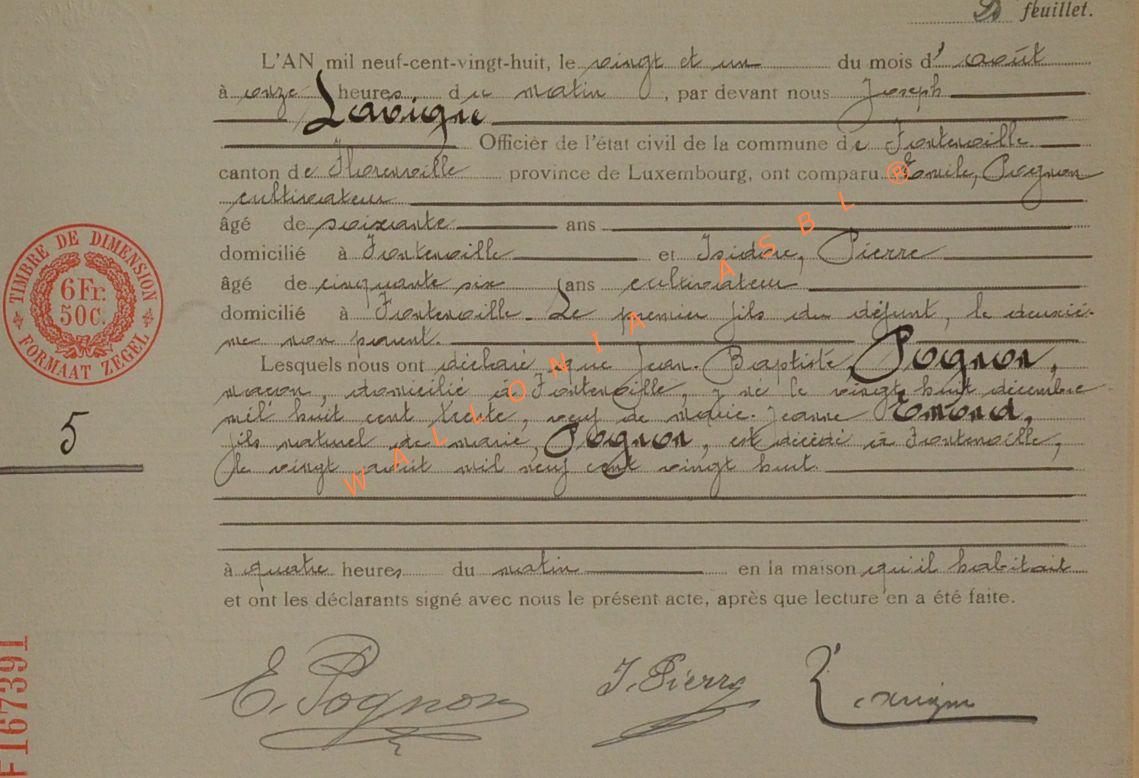 feuillet.
L'AN mil neuf-cent-vingt-huit, le vingt et un du mois d'août
à onze heures du matin, par devant nous Joseph
Lavigne
Officier de l'état civil de la commune de Fontenoille
canton de Florenville province de Luxembourg, ont comparu Emile, Pognon
cultivateur
âgé de soixante ans
domicilié à Fontenoille et Isidore, Pierre
âgé de cinquante six ans cultivateur
domicilié à Fontenoille. Le premier fils du défunt, le deuxiè-
me non parent.
Lesquels nous ont déclaré que Jean-Baptiste Pognon,
maçon, domicilié à Fontenoille, y né le vingt huit décembre
mil huit cent trente, veuf de Marie-Jeanne Emond,
fils naturel de Marie, Pognon, est décédé à Fontenoille,
le vingt août mil neuf cent vingt huit.
à quatre heures du matin en la maison qu'il habitait
et ont les déclarants signé avec nous le présent acte, après que lecture en a été faite.
E. Pognon
I. Pierre
Lavigne
TIMBRE DE DIMENSION
6Fr.
50C.
FORMAAT ZEGEL
5
F167391
WALLONIA ASBL ®